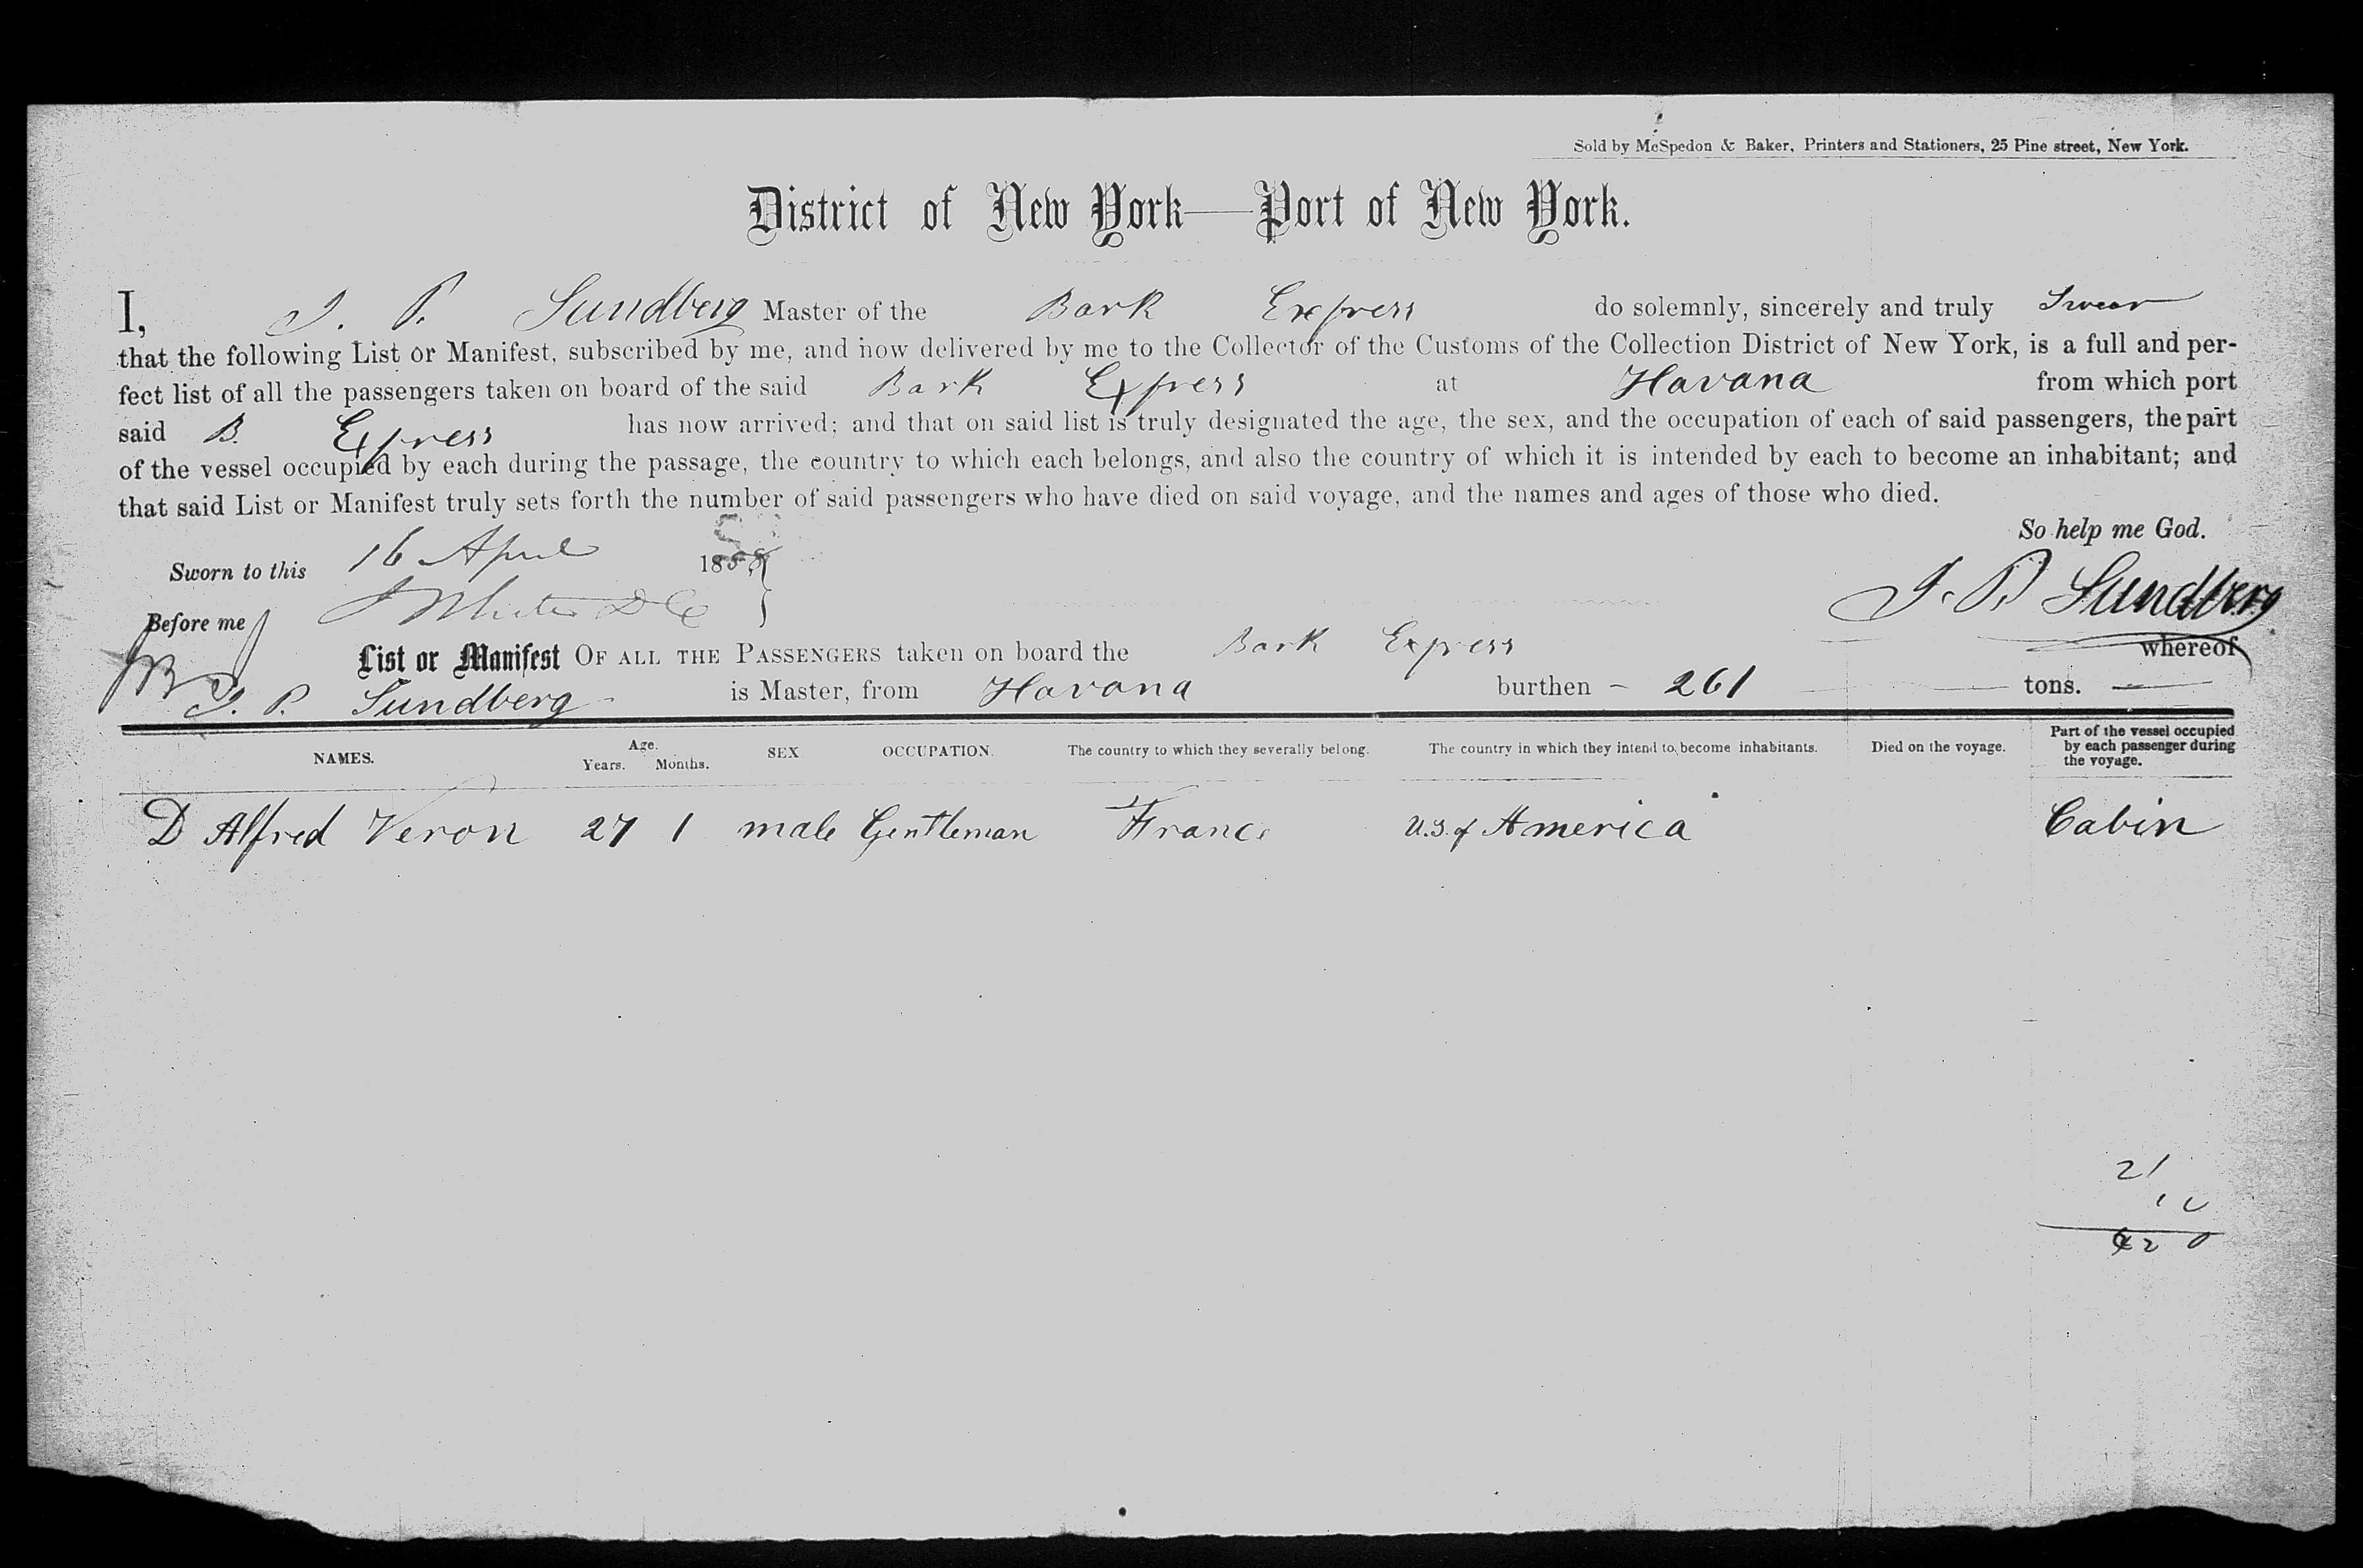 Sold by McSpedon & Baker, Printers and Stationers, 25 Pine street, New York.
District of New York—Port of New York.
I, J. P. Sundberg Master of the Bark Express do solemnly, sincerely and truly Swear
that the following List or Manifest, subscribed by me, and now delivered by me to the Collector of the Customs of the Collection District of New York, is a full and per-
fect list of all the passengers taken on board of the said Bark Express at Havana from which port
said B. Express has now arrived; and that on said list is truly designated the age, the sex, and the occupation of each of said passengers, the part
of the vessel occupied by each during the passage, the country to which each belongs, and also the country of which it is intended by each to become an inhabitant; and
that said List or Manifest truly sets forth the number of said passengers who have died on said voyage, and the names and ages of those who died.
So help me God.
Sworn to this 16 April 1858
J. P. Sundberg
Before me
List or Manifest OF ALL THE PASSENGERS taken on board the Bark Express whereof
J. P. Sundberg is Master, from Havana burthen - 261 tons.
NAMES. Age. Years. Months. SEX OCCUPATION. The country to which they severally belong. The country in which they intend to become inhabitants. Died on the voyage. Part of the vessel occupied by each passenger during the voyage.
D Alfred Veron 27 1 male Gentleman France U.S. of America Cabin
21